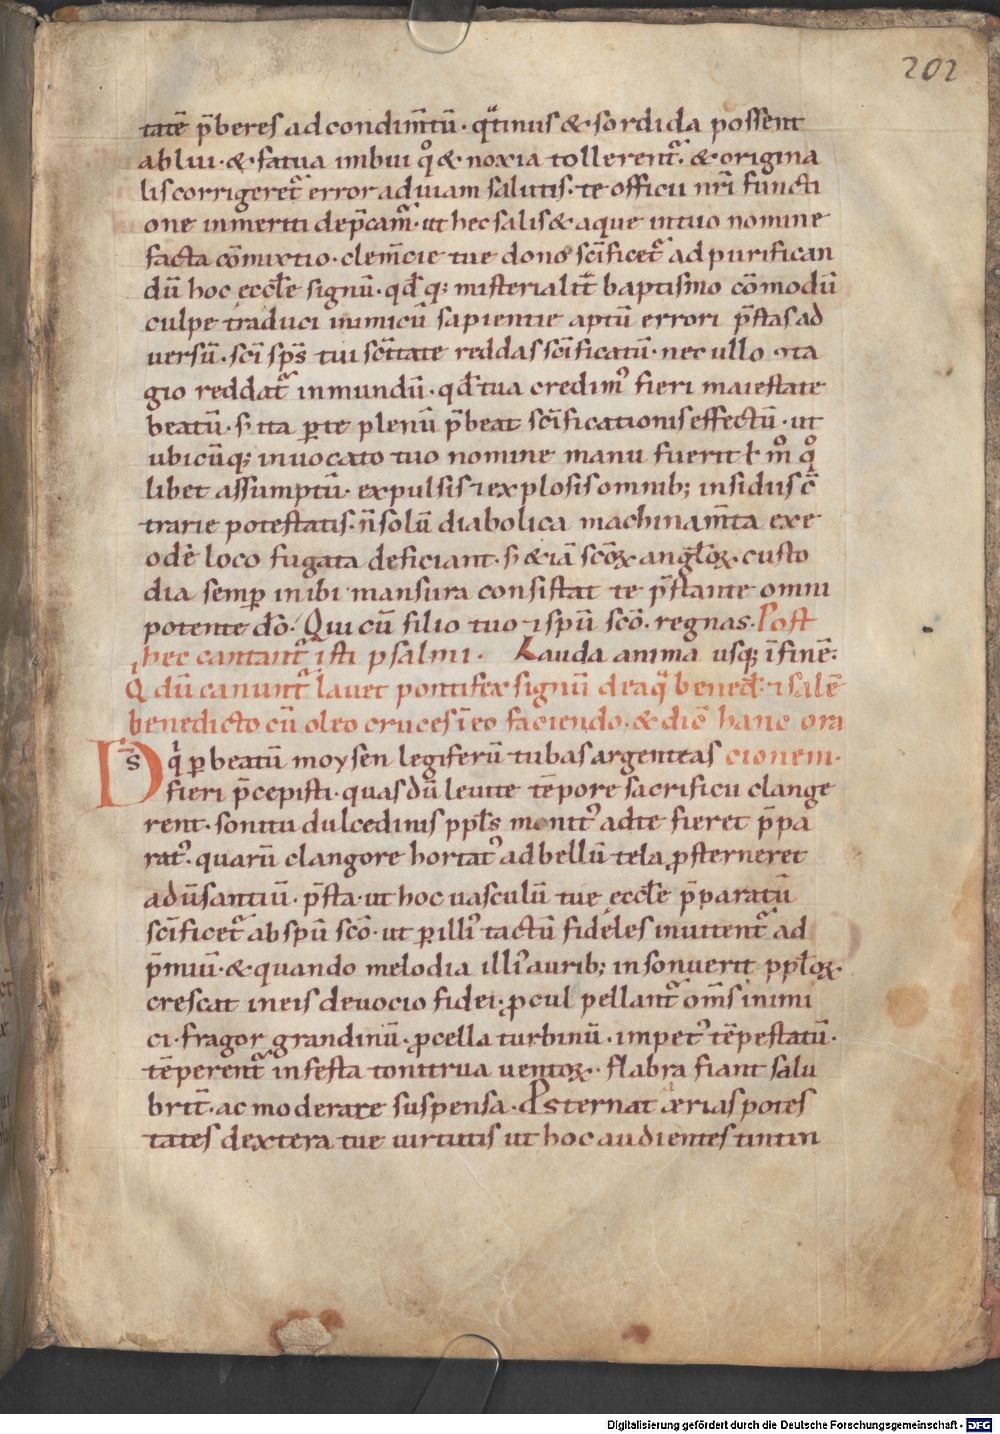 202
tatē p̄beres ad condim̄tū· qͣtinus & sordida possent
ablui· & fatua imbui qͦ & noxia tollerent᷑· & origina
lis corrigeret᷑ error ad uiam salutis· te officii nr̄i functi
one inmeriti dep̄cam᷑· ut hec salis & aque in tuo nomine
facta cōmixtio· clem̄cie tue dono sc̄ificet᷑ ad purifican
dū hoc eccłe signū· qđ q; misterialit̄ baptismo cōmodū
culpe traduci inimicū sapientie aptū errori p̄stas ad
uersū· sc̄i sp̄s tui sc̄itate reddas sc̄ificatū· nec ullo ꝯta
gio reddat᷑ inmundū· qđ tua credimꝰ fieri maiestate
beatū· s; ita ꝑ te plenū p̄beat sc̄ificationis effectū· ut
ubicūq; inuocato tuo nomine manu fuerit ł mͦ qͦ
libet assumptū· expulsis ⁊ explosis omnib; insidiis c̄
trarie potestatis· n̄ solū diabolica machinam̄ta exe
odē loco fugata deficiant· s; & iā sc̄oꝝ angłoꝝ· custo
dia semꝑ inibi mansura consistat te p̄stante omni
potente dō· Qui cū filio tuo ⁊ spū scō· regnas· Post
hec cantant᷑ isti psalmi· Lauda anima usq; ī finē·
Q dū canunt᷑ lauet pontifex signū de aqͣ bened̄· ⁊ salē
benedicto cū oleo cruces ī eo faciendo· & dic̄ hanc ora
Ds̄ qͥ ꝑ beatū moysen legiferū tubas argenteas cionem·
fieri p̄cepisti· quas dū leuite tēpore sacrificii clange
rent· sonitu dulcedinis ppłs monitꝰ ad te fieret p̄pa
ratꝰ· quarū clangore hortatꝰ ad bellū tela ꝓsterneret
aduersantiū· p̄sta· ut hoc uasculū tue eccłe p̄paratū
sc̄ificet᷑ ab spū scō· ut ꝑ illiꝰ tactū fideles inuitent᷑ ad
p̄miū· & quando melodia illiꝰ aurib; insonuerit ppłoꝝ·
crescat in eis deuocio fidei· ꝓcul pellant᷑ om̄s inimi
ci· fragor grandinū· ꝓcella turbinū· impetꝰ tēpestatū·
tēperent᷑ infesta tonitrua uentoꝝ· flabra fiant salu
brit̄· ac moderare suspensa· Ꝓsternat aerias potes
tates dextera tue uirtutis ut hoc audientes tintin
Digitalisierung gefördert durch die Deutsche Forschungsgemeinschaft - DFG